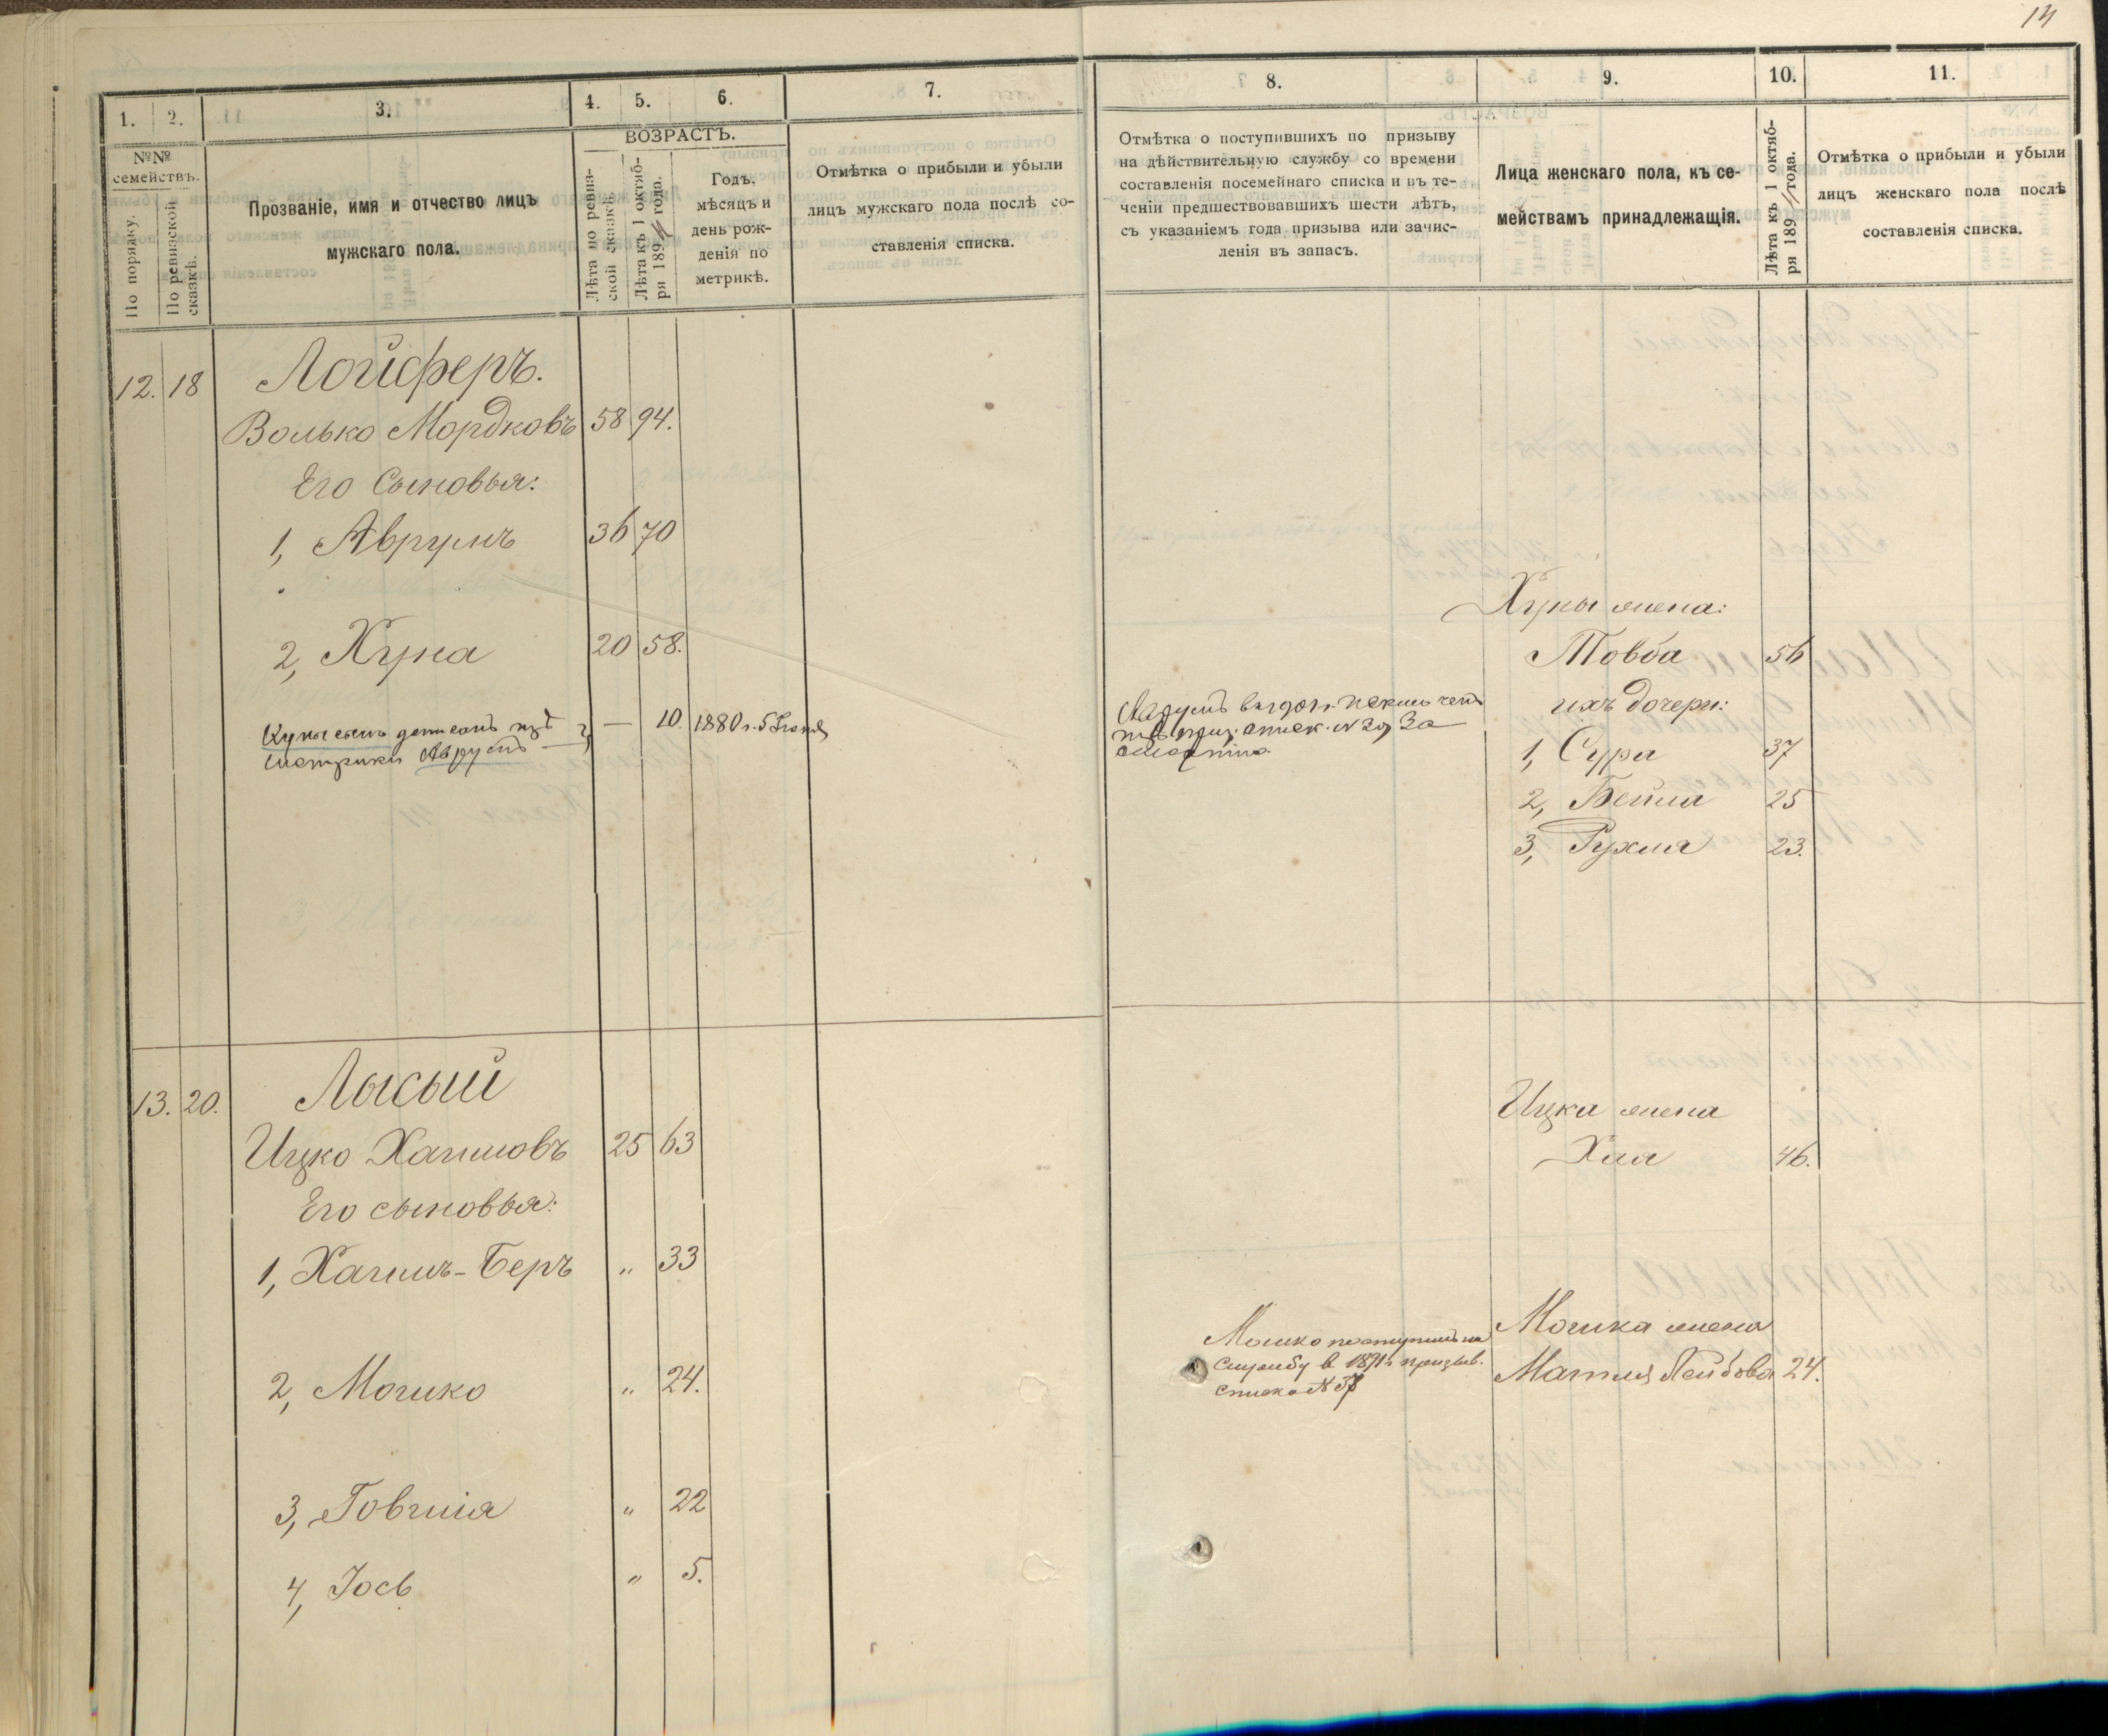 14
1. 2. 3. 4. 5. 6. 7.
№№ семействъ.
По порядку.
По ревизской сказкѣ.
Прозваніе, имя и отчество лицъ
мужскаго пола.
ВОЗРАСТЪ.
Лѣта по ревиз-
ской сказкѣ.
Лѣта къ 1 октяб-
ря 189 года.
Годъ,
мѣсяцъ и
день рож-
денія по
метрикѣ.
Отмѣтка о прибыли и убыли
лицъ мужскаго пола послѣ со-
ставленія списка.
8. 9. 10. 11.
Отмѣтка о поступившихъ по призыву
на дѣйствительную службу со времени
составленія посемейнаго списка и въ те-
ченіи предшествовавшихъ шести лѣтъ,
съ указаніемъ года призыва или зачис-
ленія въ запасъ.
Лица женскаго пола, къ се-
мействамъ принадлежащія.
Лѣта къ 1 октяб-
ря 189 года.
Отмѣтка о прибыли и убыли
лицъ женскаго пола послѣ
составленія списка.
12. 18 Лойферъ.
Волько Мордковъ 58 94.
Его Сыновья:
1, Аврумъ 36 70
2, Хуна 20 58.
Хуны сынъ дописанъ изъ — 10. 1880 г. 5 Іюня
метрики Аврумъ
Хуны жена:
Товба 56
ихъ дочери:
1, Сура 37
2, Бейла 25
3, Рухля 23.
13. 20. Лысый
Ицко Хаимовъ 25 63
Его сыновья:
1, Хаимъ-Беръ " 33
2, Мошко " 24.
3, Говшія " 22
4, Іось " 5.
Ицка жена
Хая 46.
Мошко поступилъ на
службу в 1891 г. призыв.
списка № 37
Мошка жена
Матля Лейбова 24.